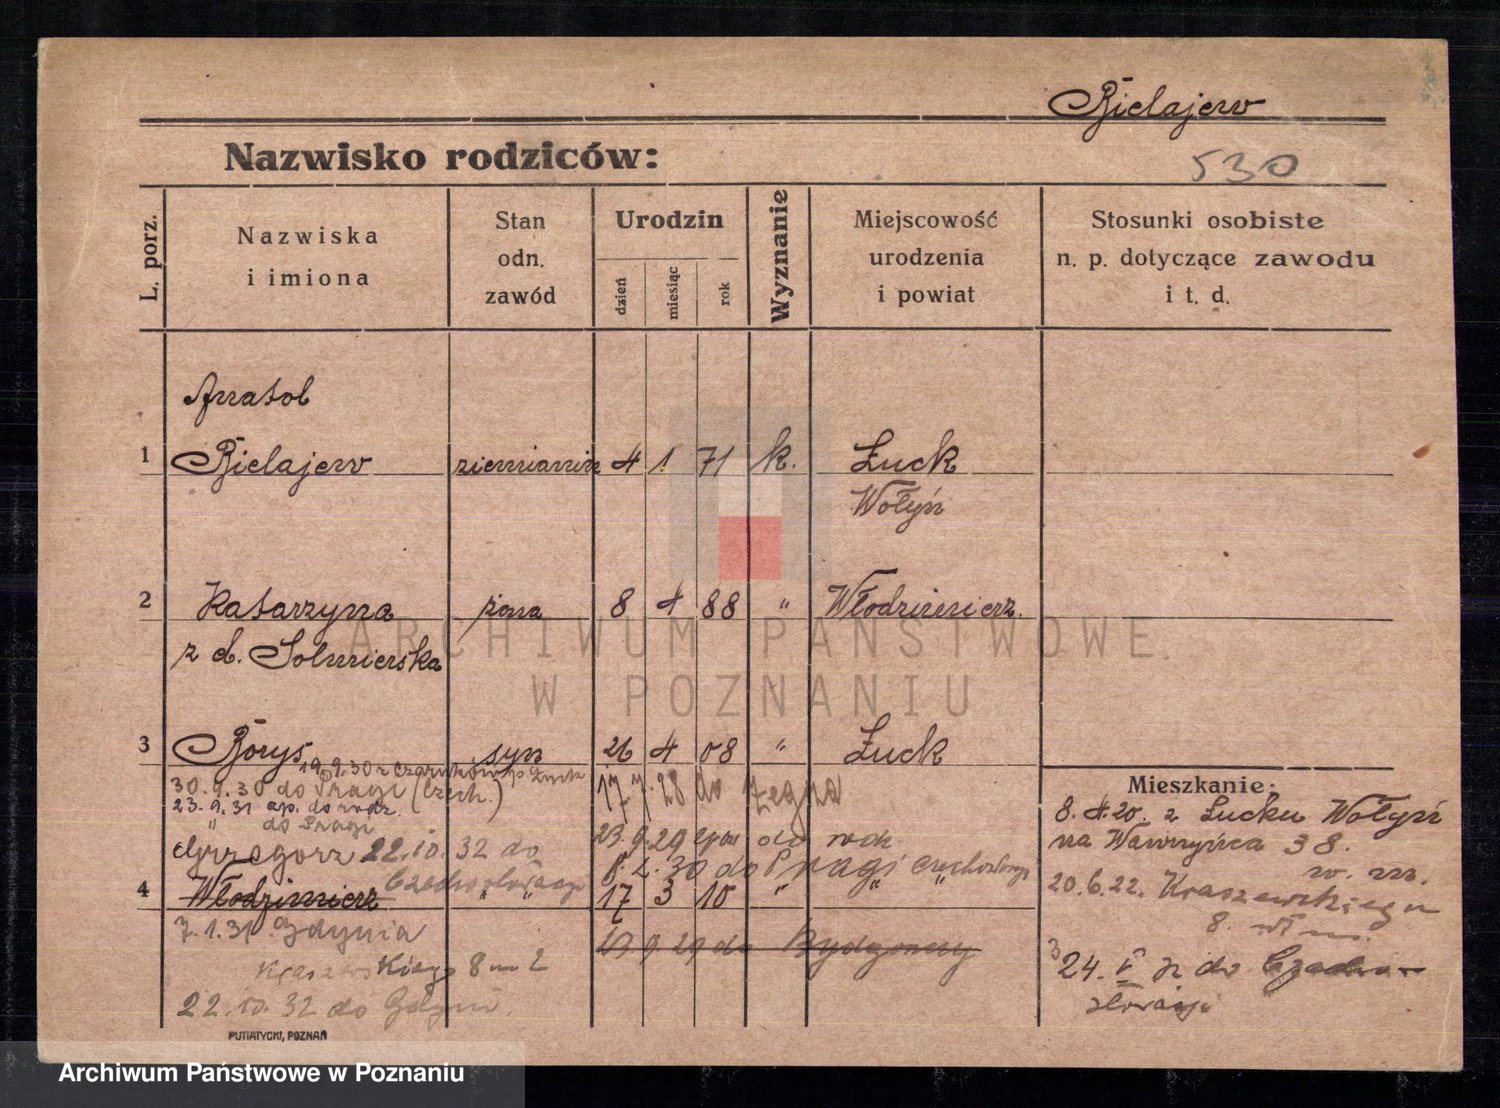 Bielajew
Nazwisko rodziców:
530
L. porz.
Nazwiska
i imiona
Stan
odn.
zawód
Urodzin
dzień
miesiąc
rok
Wyznanie
Miejscowość
urodzenia
i powiat
Stosunki osobiste
n. p. dotyczące zawodu
i t. d.
Anatol
1 Bielajew ziemianin 4 1 71 k. Łuck
Wołyń
2 Katarzyna żona 8 4 88 " Włodzimierz.
z d.
3 Borys syn 26 4 08 " Łuck
19.9.30 z
30.9.30 do Pragi (Czech.)
17.7.28 do Zegrza
23.9.31 do
" do Pragi
23.9.29 do
Grzegorz 22.10.32 do
30 do Pragi
Czechosłowacji
4 Włodzimierz " " 17 3 10 " " "
7.1.31. Gdynia
9 29 do Bydgoszczy
Kraszewskiego 8 m 2
22.10.32 do Gdyni.
Mieszkanie:
8.4.20. z Łucku Wołyń
na Wawrzyńca 38.
w. m.
20.6.22. Kraszewskiego
8.
24. V do Czecho-
słowacji
PUTIATYCKI, POZNAŃ
ARCHIWUM PAŃSTWOWE
W POZNANIU
Archiwum Państwowe w Poznaniu